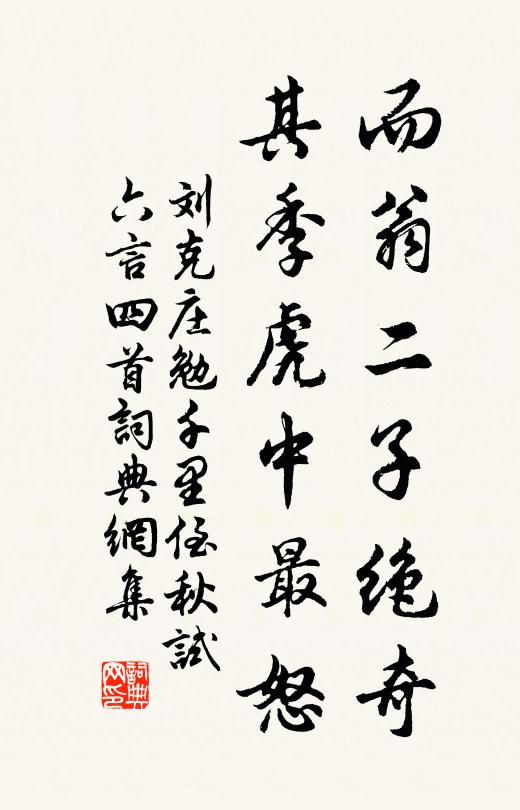 而翁二子绝奇
其季虎中最怒
刘克庄勉千里侄秋試
六言四首詞典網集
詞典
网印